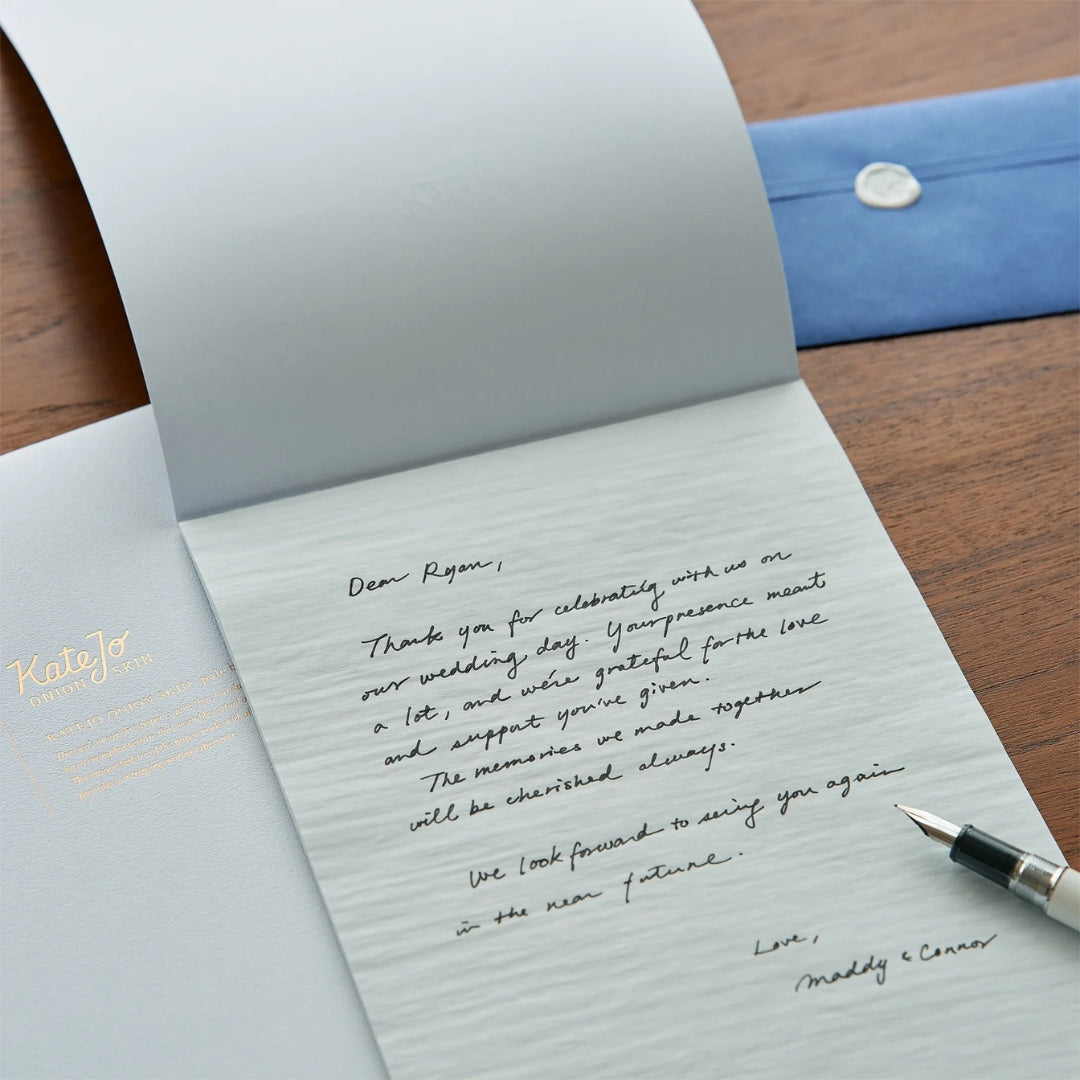 Dear Ryan,
Thank you for celebrating with us on
our wedding day. Your presence meant
a lot, and we're grateful for the love
and support you've given.
The memories we made together
will be cherished always.
We look forward to seeing you again
in the near future.
Love,
Maddy & Connor
KateJo
ONION SKIN
KATEJO ONION SKIN